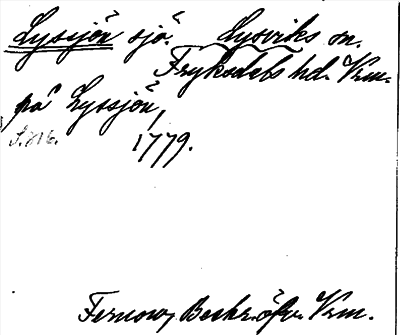 Lyssjön sjö. Lysviks sn.
Fryksdals hd. Vrm.
på Lyssjön,
S. 216. 1779.
Fernow, Beskr. öfv. Vrm.